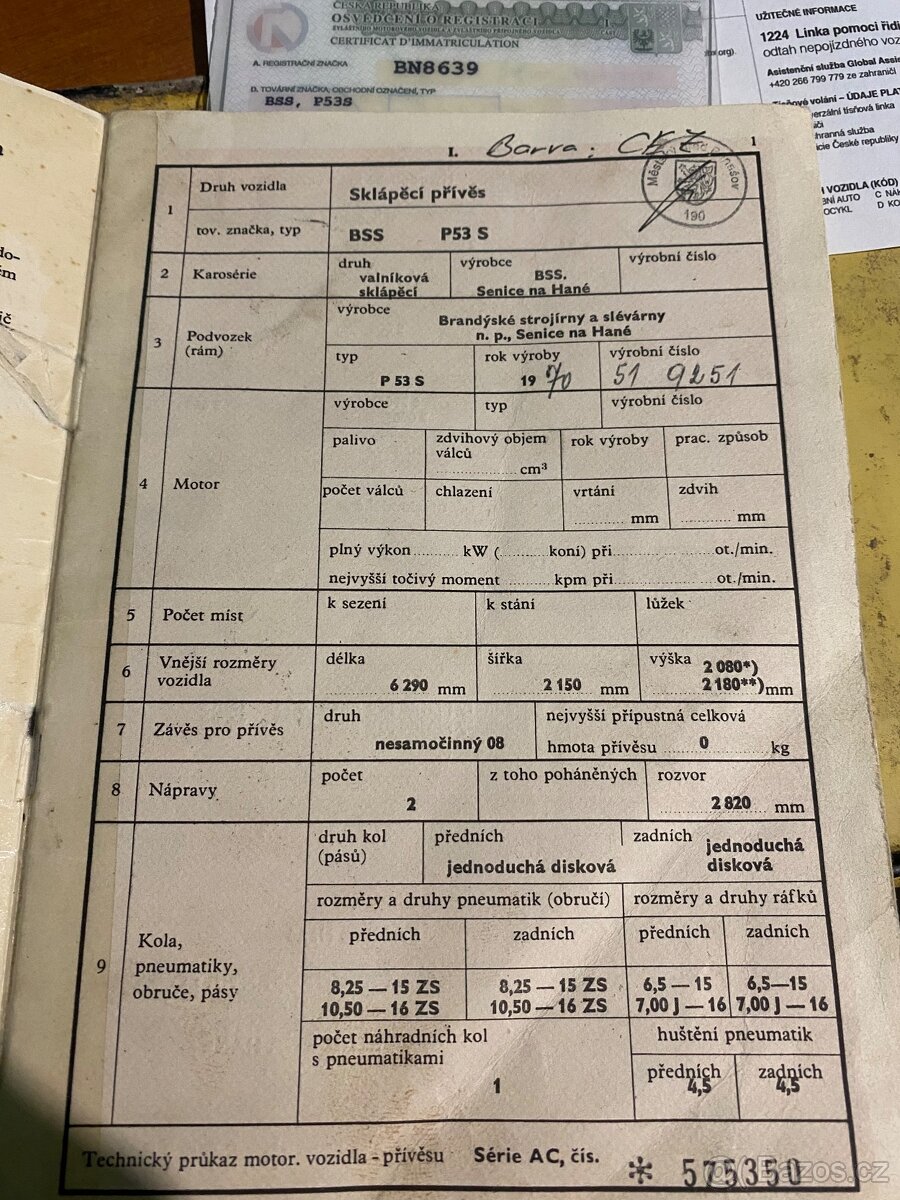 ČESKÁ REPUBLIKA
OSVĚDČENÍ O REGISTRACI
ZVLÁŠTNÍHO MOTOROVÉHO VOZIDLA A ZVLÁŠTNÍHO PŘÍPOJNÉHO VOZIDLA
CERTIFICAT D'IMMATRICULATION
A. REGISTRAČNÍ ZNAČKA
BN8639
D. TOVÁRNÍ ZNAČKA, OBCHODNÍ OZNAČENÍ, TYP
BSS, P53S
UŽITEČNÉ INFORMACE
1224 Linka pomoci řidi
odtah nepojízdného voz
Asistenční služba Global Assi
+420 266 799 779 ze zahraničí
volání – ÚDAJE PLAT
verzální tísňová linka
chranná služba
icie České republiky
VOZIDLA (KÓD)
BNÍ AUTO C NÁK
OCYKL D KO
I. Barva: 1
Měst
190
1 Druh vozidla Sklápěcí přívěs
tov. značka, typ BSS P53 S
2 Karosérie druh valníková sklápěcí výrobce BSS. Senice na Hané výrobní číslo
3 Podvozek (rám) výrobce Brandýské strojírny a slévárny
n. p., Senice na Hané
typ rok výroby výrobní číslo
P 53 S 19 70 51 9251
4 Motor výrobce typ výrobní číslo
palivo zdvihový objem válců cm³ rok výroby prac. způsob
počet válců chlazení vrtání mm zdvih mm
plný výkon kW ( koní) při ot./min.
nejvyšší točivý moment kpm při ot./min.
5 Počet míst k sezení k stání lůžek
6 Vnější rozměry vozidla délka šířka výška 2 080*)
6 290 mm 2 150 mm 2 180**) mm
7 Závěs pro přívěs druh nejvyšší přípustná celková
nesamočinný 08 hmota přívěsu 0 kg
8 Nápravy počet z toho poháněných rozvor
2 2 820 mm
9 Kola, pneumatiky, obruče, pásy druh kol (pásů) předních jednoduchá disková zadních jednoduchá disková
rozměry a druhy pneumatik (obručí) rozměry a druhy ráfků
předních zadních předních zadních
8,25 — 15 ZS 8,25 — 15 ZS 6,5 — 15 6,5—15
10,50 — 16 ZS 10,50 — 16 ZS 7,00 J — 16 7,00 J — 16
počet náhradních kol huštění pneumatik
s pneumatikami
předních zadních
1 4,5 4,5
Technický průkaz motor. vozidla - přívěsu Série AC, čís. * 575350
Bazos.cz